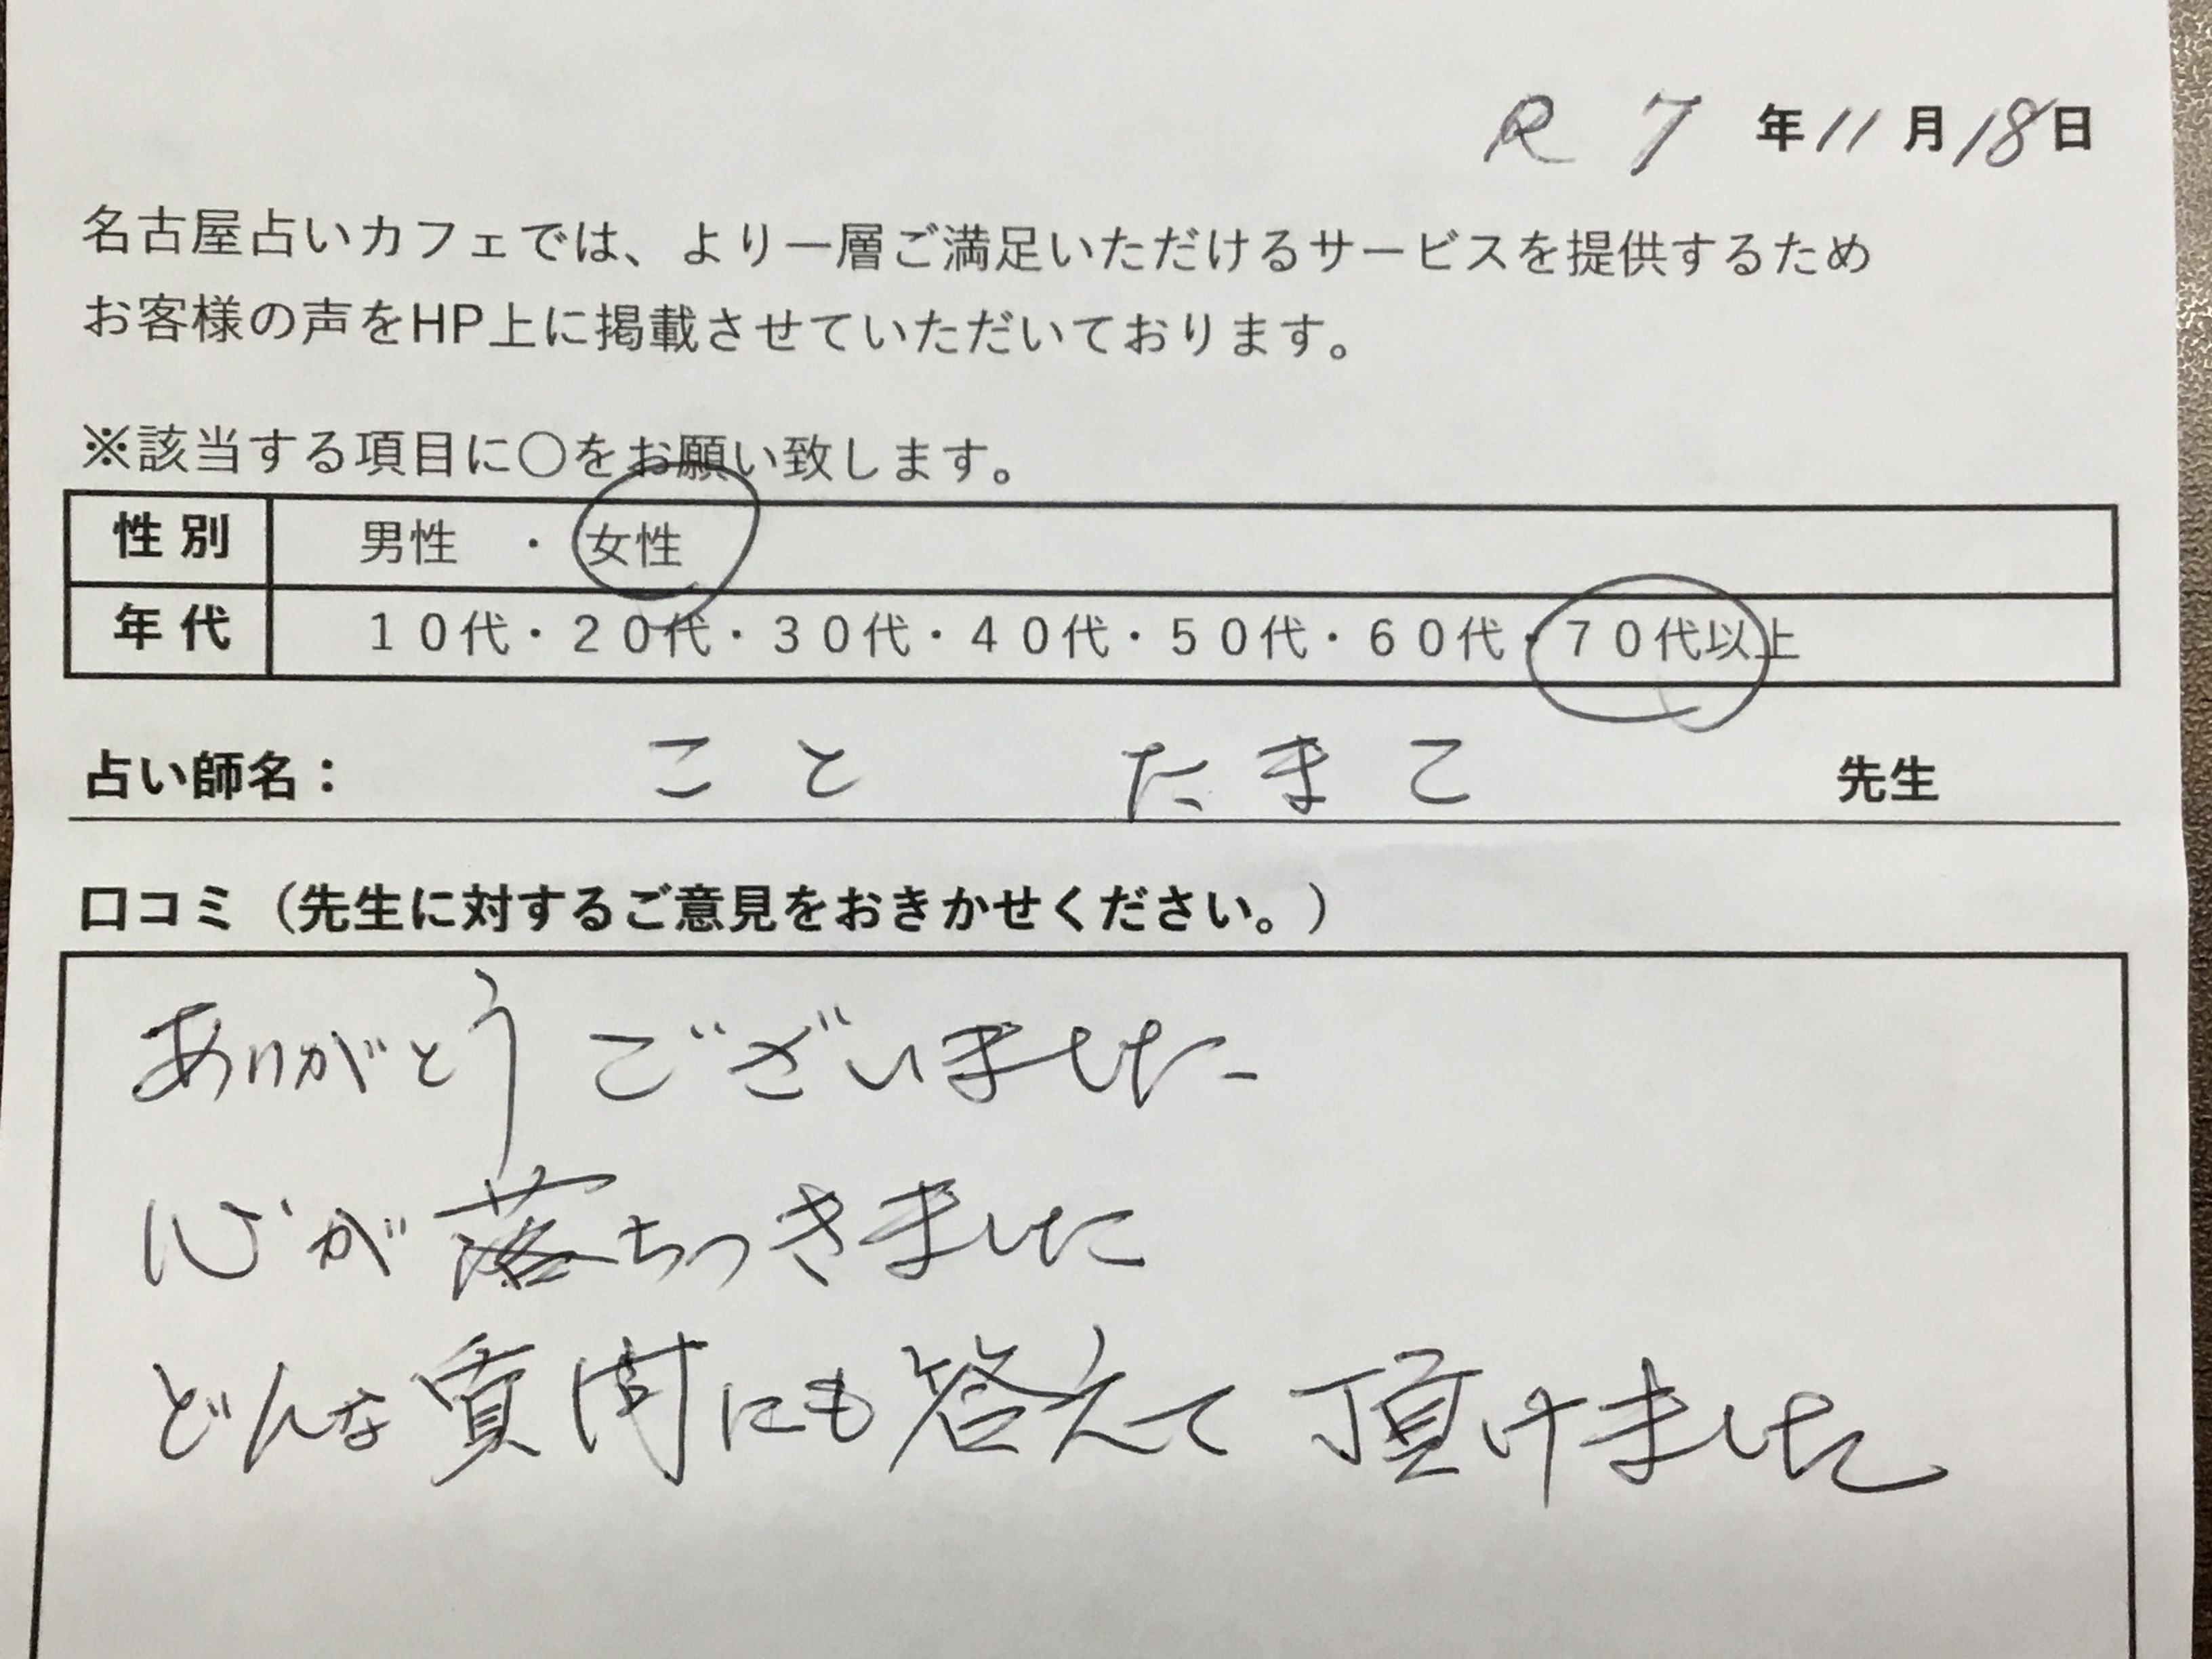 R 7 年 11 月 18 日
名古屋占いカフェでは、より一層ご満足いただけるサービスを提供するため
お客様の声をHP上に掲載させていただいております。
※該当する項目に〇をお願い致します。
性別 男性 ・ 女性
年代 １０代・２０代・３０代・４０代・５０代・６０代・７０代以上
占い師名： こと たまこ 先生
口コミ（先生に対するご意見をおきかせください。）
ありがとうございました
心が落ちつきました
どんな質問にも答えて頂けました